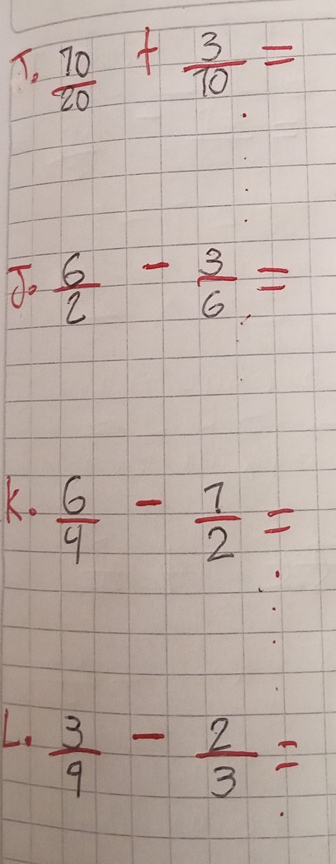 I. 10/20 + 3/10 =
J. 6/2 - 3/6 =
K. 6/4 - 1/2 =
L. 3/9 - 2/3 =